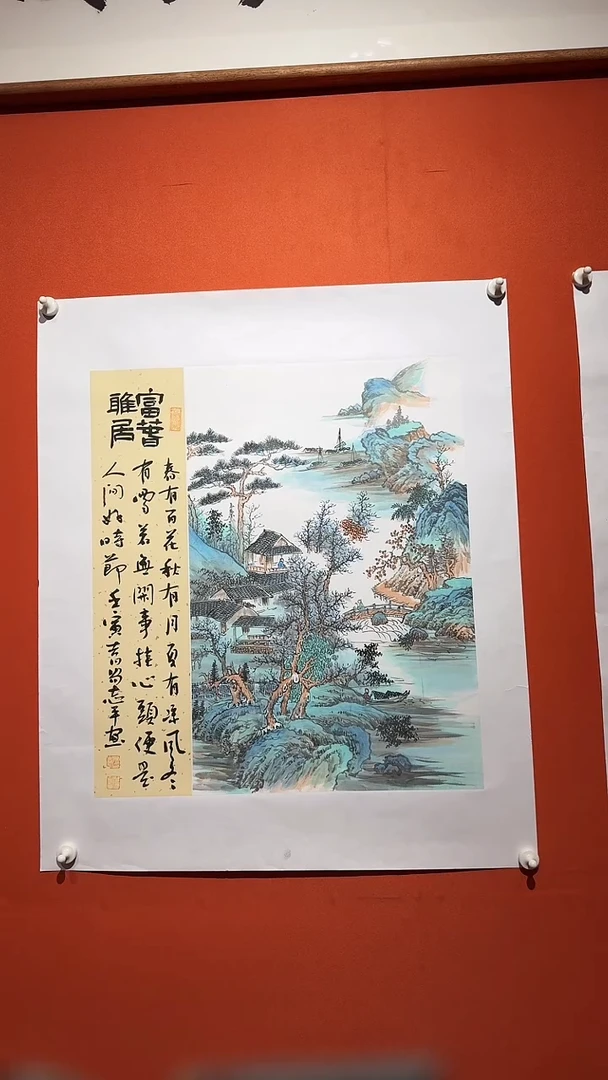 富春
雅居
春有百花秋有月夏有凉风冬
有雪若無閑事挂心頭便是
人间好時節壬寅志平画